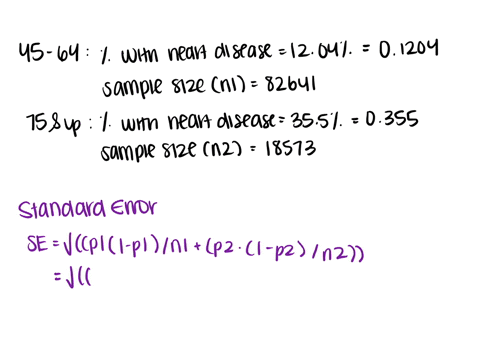 45-64: % with heart disease = 12.04% = 0.1204
sample size (n1) = 82641
75 & up: % with heart disease = 35.5% = 0.355
sample size (n2) = 18573
Standard Error
SE = √((p1(1-p1)/n1 + (p2·(1-p2)/n2))
= √((